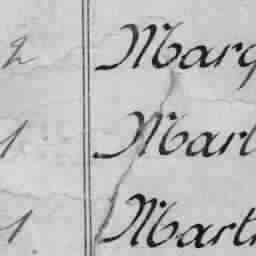 2 Marq
1 Marl
1 Mart